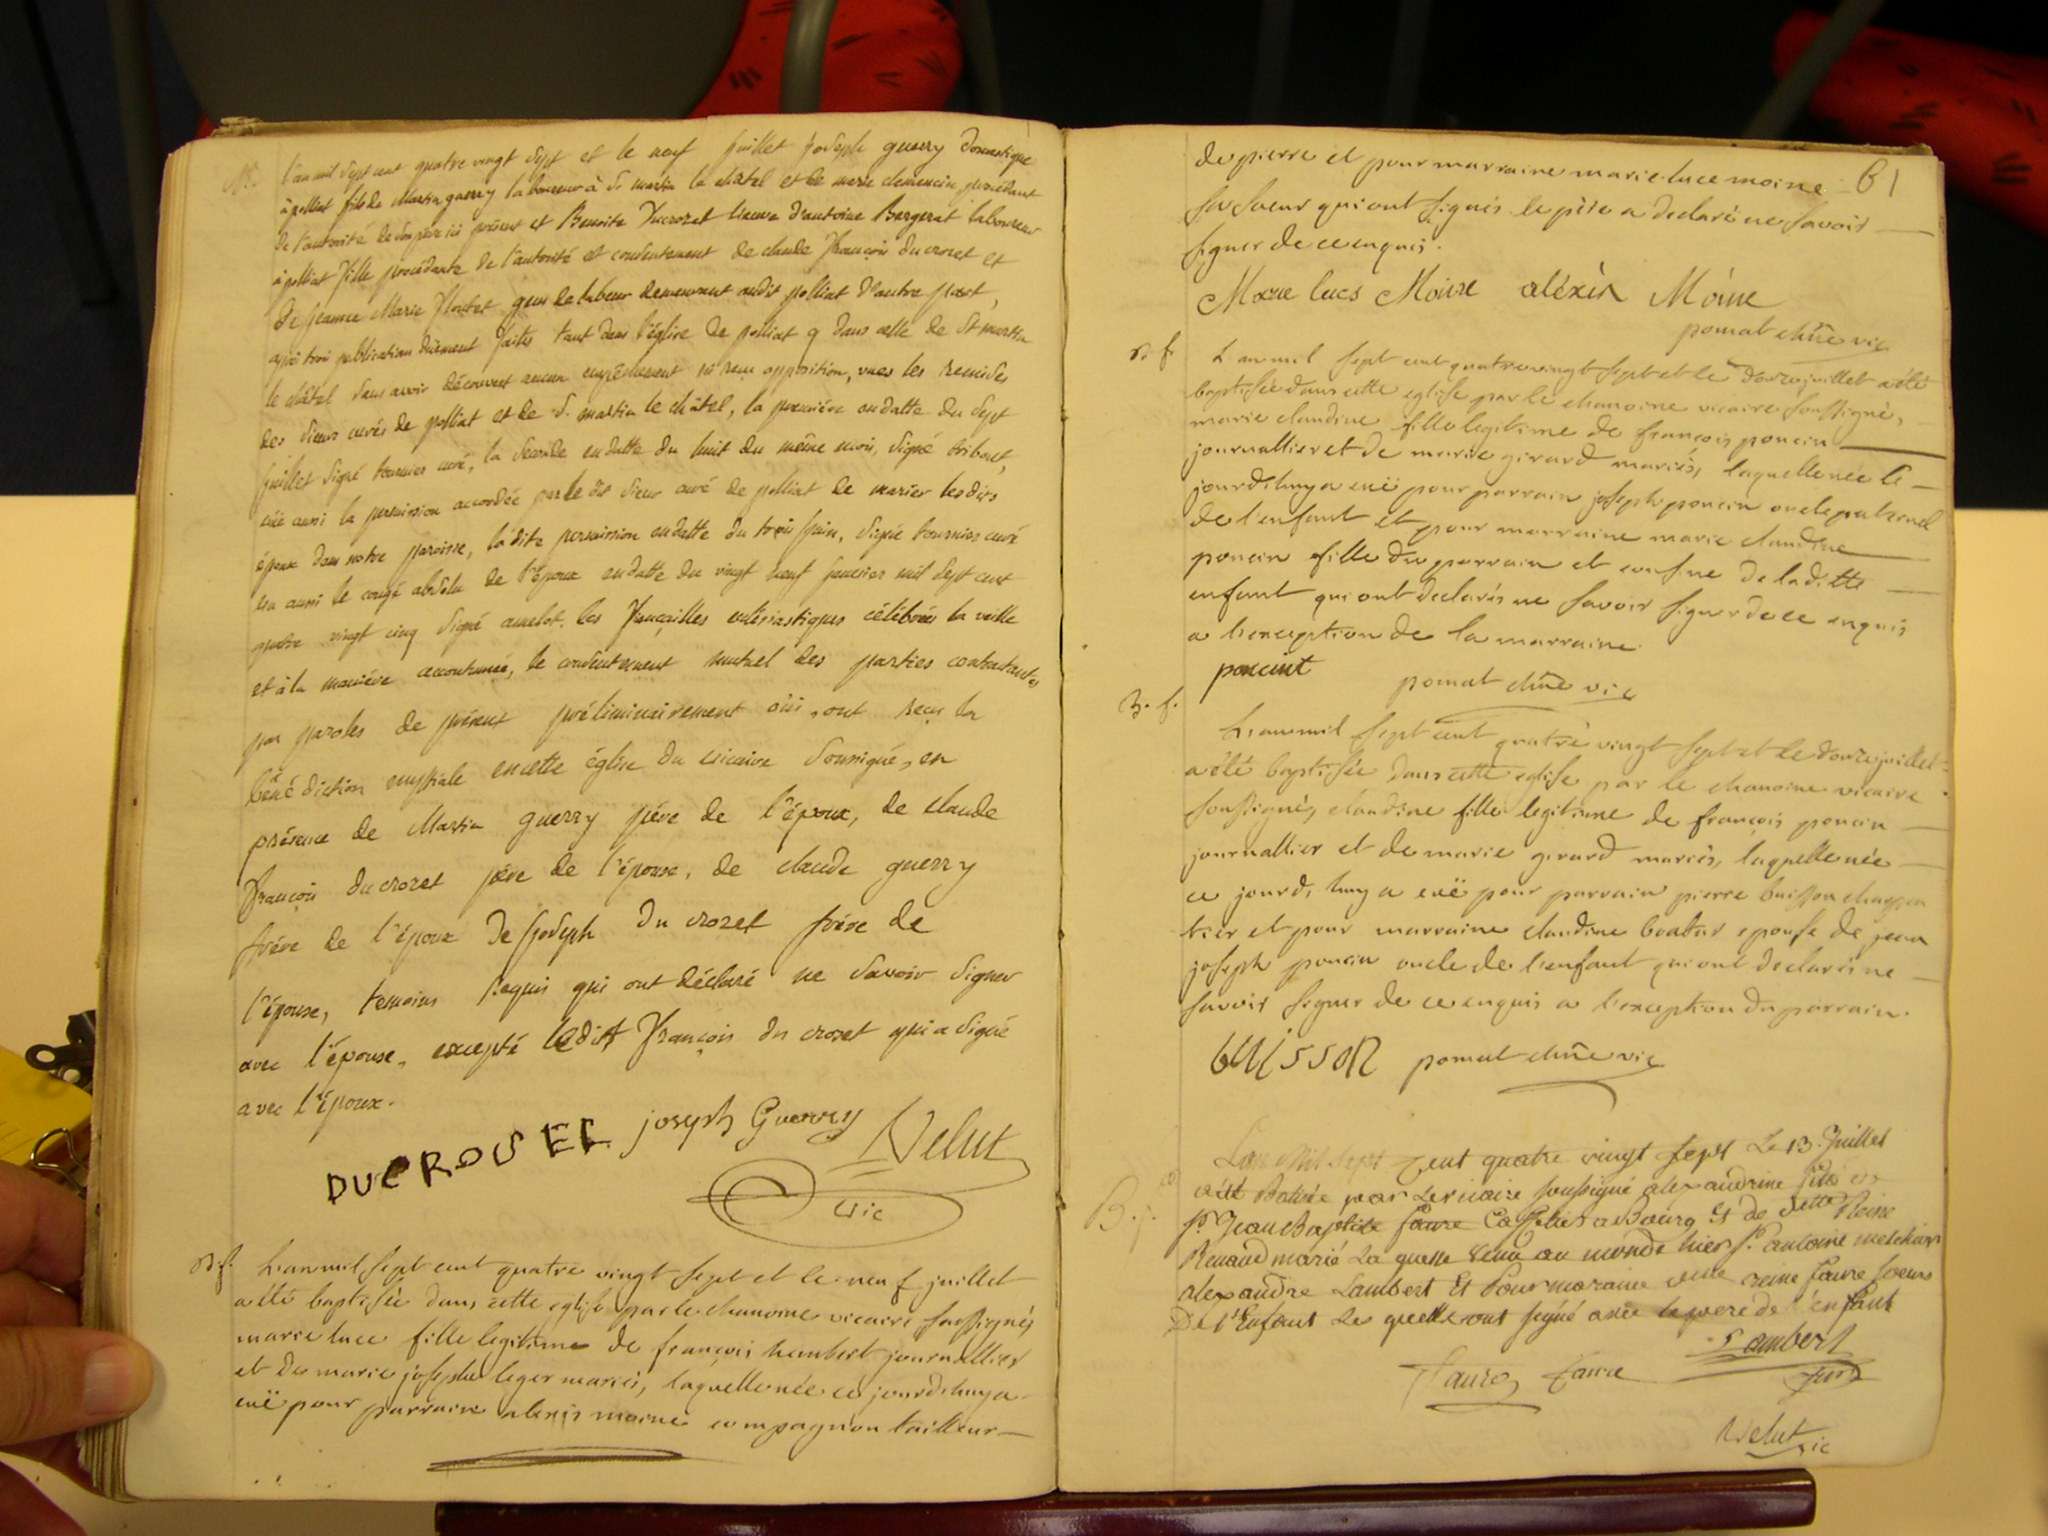 M.
l'an mil sept cent quatre vingt sept et le neuf juillet joseph guerry domestique
à polliat fils de Martin guerry laboureur à St martin le châtel et de marie clemencin, procédant
de l'autorité de son père ici présent et Benoite Ducrozet d'antoine Bergerat laboureur
à polliat fille procédante de l'autorité et consentement de claude François ducrozet et
de jeanne Marie gens de labeur demeurant audit polliat d'autre part,
après trois publications duement faites tant dans l'église de polliat q dans celle de St martin
le châtel sans avoir découvert aucun empêchement ni reçu opposition, vues les remises
des sieurs curés de polliat et de St martin le châtel, la première en datte du sept
juillet signé tournier curé, la seconde en datte du huit du même mois, signé
vüe aussi la permission accordée par le dit sieur curé de polliat de marier lesdits
époux dans notre paroisse, ladite permission en datte du trois juin, signé tournier curé
vu aussi le congé absolu de l'époux en datte du vingt neuf janvier mil sept cent
quatre vingt cinq signé amelot. les fiançailles ecclésiastiques célébrées la veille
et à la manière accoutumée, le consentement mutuel des parties contractantes
par paroles de présent préliminairement oüi, ont reçu la
bénédiction nuptiale en cette église du vicaire soussigné, en
présence de Martin guerry père de l'époux, de claude
François ducrozet père de l'épouse, de claude guerry
frère de l'époux de joseph du crozet frère de
l'épouse, temoins requis qui ont déclaré ne savoir signer
avec l'épouse, excepté ledit François du crozet qui a signé
avec l'époux.
DUCROSEL joseph Guerry Velut
vic
B. f.
L'an mil sept cent quatre vingt sept et le neuf juillet
a été baptisée dans cette eglise par le chanoine vicaire soussigné,
marie luce fille legitime de françois humbert journallier
et de marie josephe leger mariés, laquelle née ce jourd'huy a
eüe pour parrain alexis moine compagnon tailleur
61
de pierre et pour marraine marie luce moine
sa soeur qui ont signés le père a declaré ne savoir
signer de ce enquis.
Marie luce Moine alexis Moine
pomat chne vic
B. f.
L'an mil sept cent quatre vingt sept et le douze juillet a été
baptisée dans cette eglise par le chanoine vicaire soussigné,
marie claudine fille legitime de françois poncin
journallier et de marie girard mariés, laquelle née le
jourd'huy a eüe pour parrain joseph poncin oncle paternel
de l'enfant et pour marraine marie claudine
poncin fille du parrain et cousine de laditte
enfant qui ont declarés ne savoir signer de ce enquis
a l'exception de la marraine.
poncint pomat chne vic
B. f.
L'an mil sept cent quatre vingt sept et le douze juillet
a été baptisée dans cette eglise par le chanoine vicaire
soussigné, claudine fille legitime de françois poncin
journallier et de marie girard mariés, laquelle née
ce jourd'huy a eüe pour parrain pierre buisson charpen
tier et pour marraine claudine epouse de jean
joseph poncin oncle de l'enfant qui ont declarés ne
savoir signer de ce enquis a l'exception du parrain.
buisson pomat chne vic
B. f.
Lan Mil sept Cent quatre vingt sept Le 13 Juillet
a été Batisée par Le vicaire soussigné alexandrine fille de
Sr Jean Baptiste faure Caffetier a Bourg et de delle Reine
Renaud marié La quelle venu au monde hier Sr antoine melchior
alexandre Lambert Et Pour maraine delle reine faure soeur
De l'Enfant Les quelle ont signé avec le pere de l'enfant
Lambert
faure faure
Velut vic